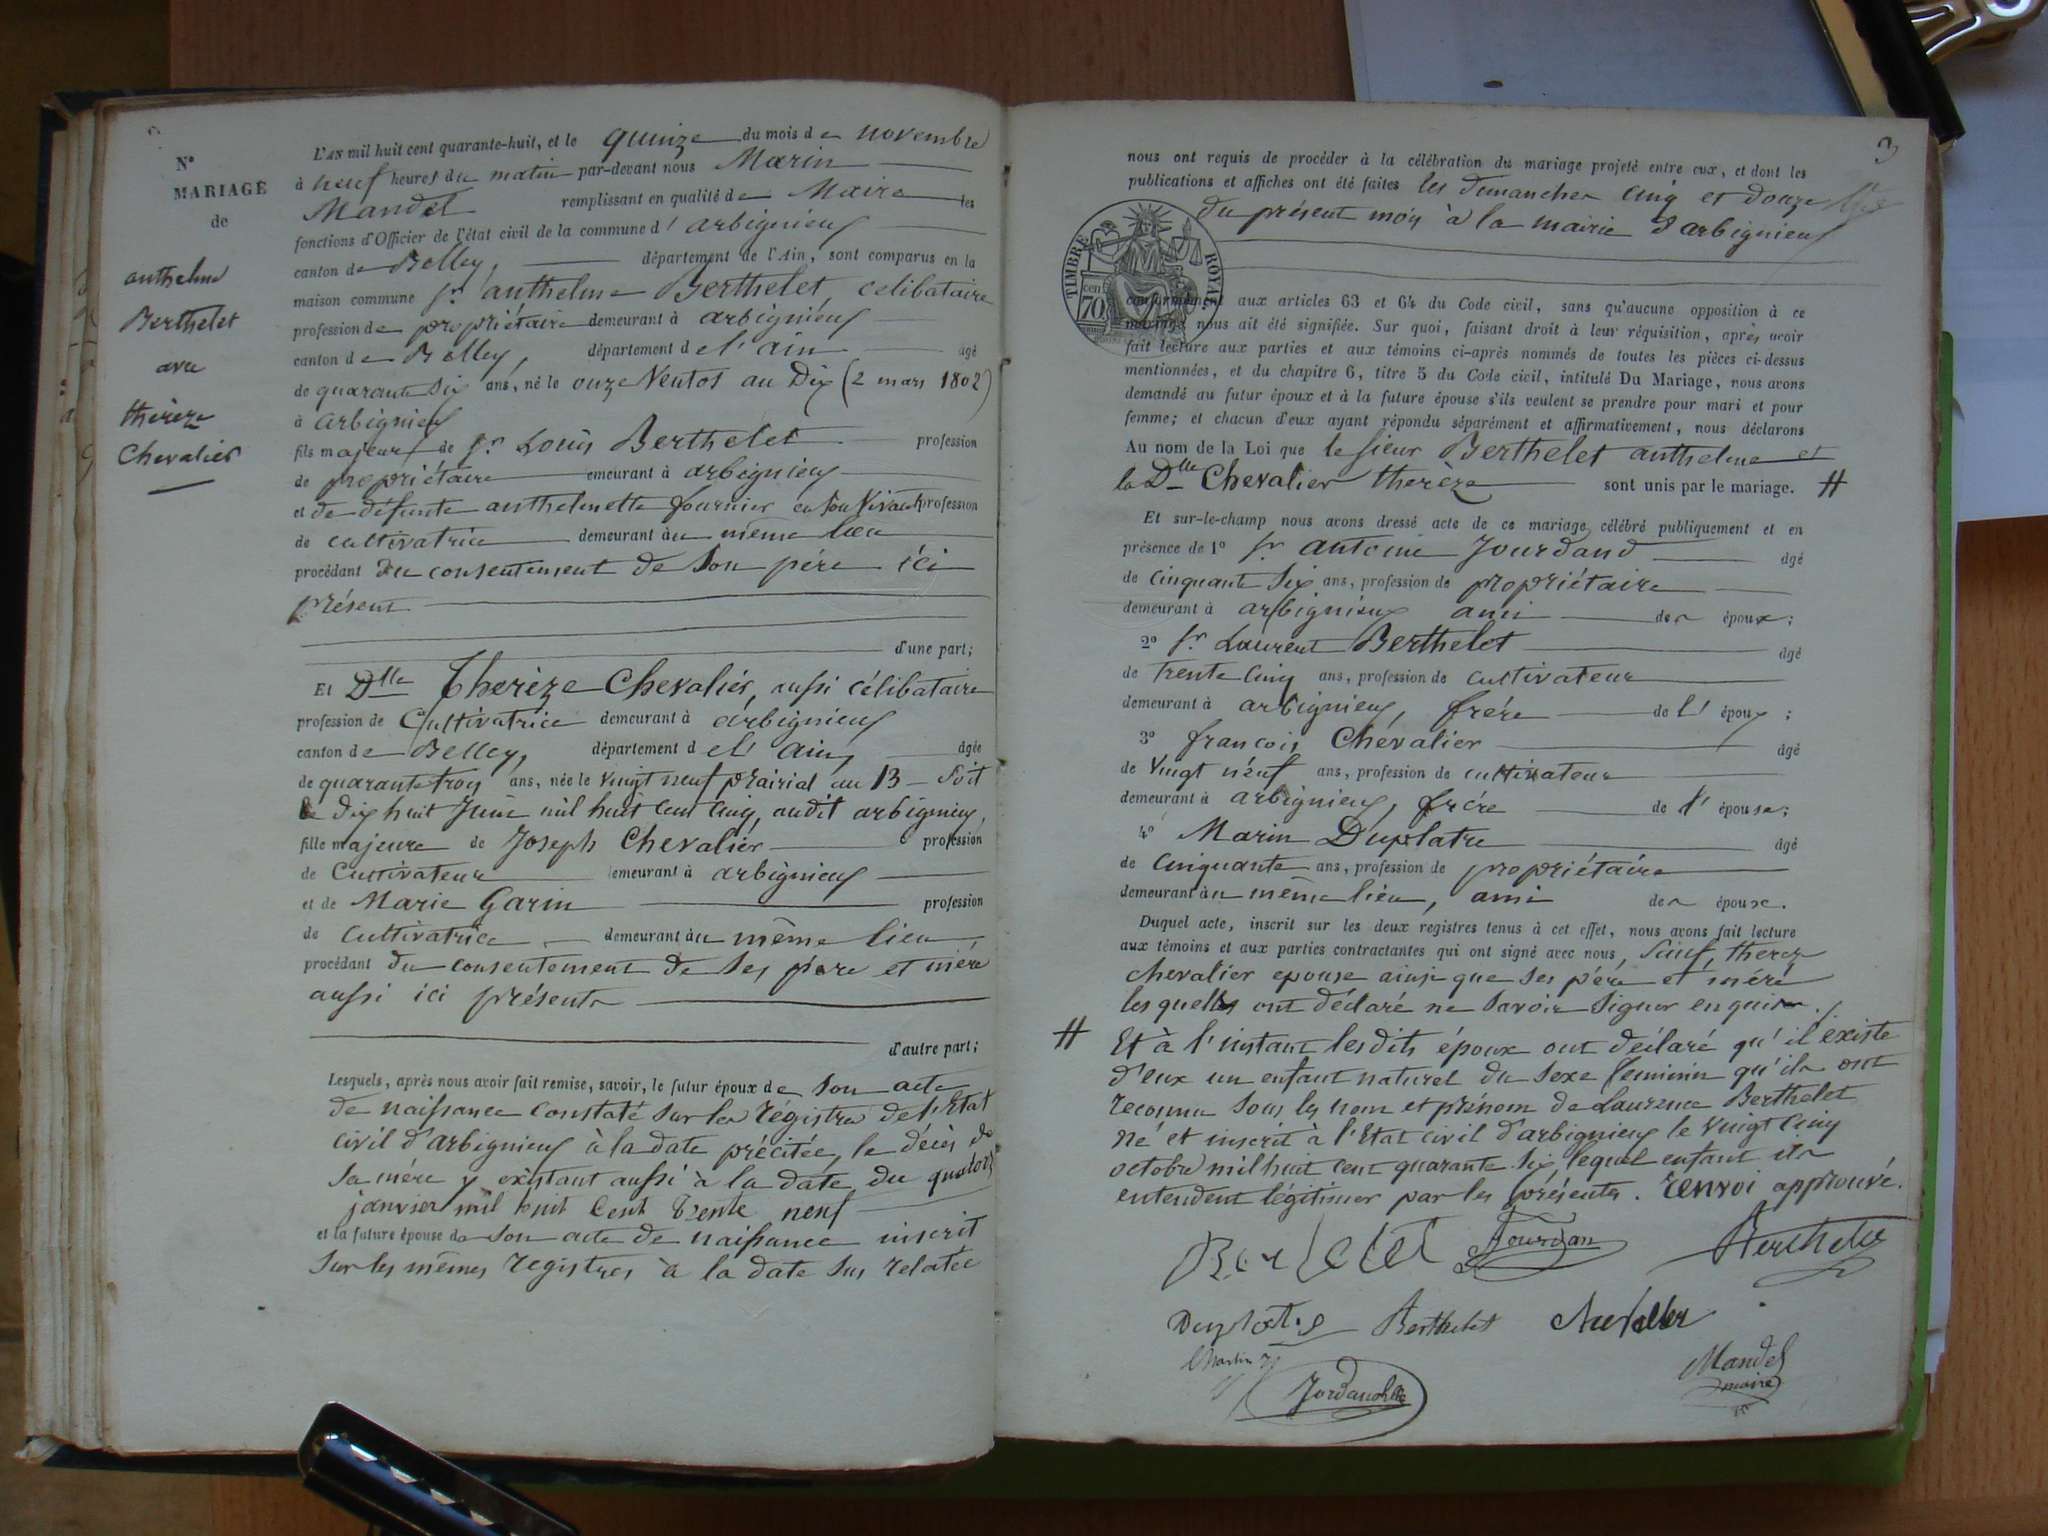 N°
MARIAGE
de
anthelme
Berthelet
avec
thérèze
Chevalier
L'AN mil huit cent quarante-huit, et le quinze du mois de novembre
à neuf heures du matin par-devant nous Marin
Mandel remplissant en qualité de Maire les
fonctions d'Officier de l'état civil de la commune d'arbignieux
canton de Belley, département de l'Ain, sont comparus en la
maison commune Sr. anthelme Berthelet, célibataire
profession de propriétaire demeurant à arbignieux
canton de Belley, département de l'ain âgé
de quarante six ans, né le onze Ventos an Dix (2 mars 1802)
à arbignieux
fils majeur de Sr. Louis Berthelet profession
de propriétaire demeurant à arbignieux
et de défunte anthelmette fournier en son Vivant profession
de cultivatrice demeurant au même lieu
procédant du consentement de Son père ici
présent
d'une part;
Et Dlle Therèze Chevalier, aussi célibataire
profession de Cultivatrice demeurant à arbignieux
canton de Belley, département de l'ain, âgée
de quarante trois ans, née le vingt neuf prairial an 13 - Soit
le dix huit Juin mil huit cent cinq, audit arbignieux,
fille majeure de Joseph Chevalier profession
de Cultivateur demeurant à arbignieux
et de Marie Garin profession
de cultivatrice demeurant au même lieu
procédant du consentement de Ses père et mère
aussi ici présents
d'autre part;
Lesquels, après nous avoir fait remise, savoir, le futur époux de son acte
de naissance constaté sur les régistres de l'Etat
civil d'arbignieux à la date précitée, le décès de
sa mère y existant aussi à la date du quatorze
janvier mil huit Cent trente neuf
et la future épouse de son acte de naissance inscrit
sur les mêmes registres à la date sus relatée
3
nous ont requis de procéder à la célébration du mariage projeté entre eux, et dont les
publications et affiches ont été faites les dimanches cinq et douze
du présent mois à la mairie d'arbignieux
TIMBRE ROYAL
70 cent
conformément aux articles 63 et 64 du Code civil, sans qu'aucune opposition à ce
mariage nous ait été signifiée. Sur quoi, faisant droit à leur réquisition, après avoir
fait lecture aux parties et aux témoins ci-après nommés de toutes les pièces ci-dessus
mentionnées, et du chapitre 6, titre 5 du Code civil, intitulé Du Mariage, nous avons
demandé au futur époux et à la future épouse s'ils veulent se prendre pour mari et pour
femme; et chacun d'eux ayant répondu séparément et affirmativement, nous déclarons
Au nom de la Loi que le Sieur Berthelet anthelme et
la Dlle Chevalier therèze sont unis par le mariage. #
Et sur-le-champ nous avons dressé acte de ce mariage célébré publiquement et en
présence de 1° Sr antoine Jourdand âgé
de cinquante six ans, profession de propriétaire
demeurant à arbignieux ami des époux;
2° Sr Laurent Berthelet âgé
de trente cinq ans, profession de cultivateur
demeurant à arbignieux, frère de l'époux;
3° françois Chevalier âgé
de vingt neuf ans, profession de cultivateur
demeurant à arbignieux, frère de l'épouse;
4° Marin Duplatre âgé
de cinquante ans, profession de propriétaire
demeurant au même lieu, ami des épouse.
Duquel acte, inscrit sur les deux registres tenus à cet effet, nous avons fait lecture
aux témoins et aux parties contractantes qui ont signé avec nous, Sauf, thereze
chevalier epouse ainsi que ses père et mère
lesquels ont déclaré ne savoir signer enquis.
# Et à l'instant lesdits époux ont déclaré qu'il existe
d'eux un enfant naturel du sexe feminin qu'ils ont
reconnu sous les nom et prénom de Laurence Berthelet
né et inscrit à l'Etat civil d'arbignieux le vingt cinq
octobre mil huit cent quarante six, lequel enfant ils
entendent légitimer par les présentes. renvoi approuvé.
Berthelet Jourdan Berthelet
Duplatre Berthelet Chevallier
Martin
Mandel
maire